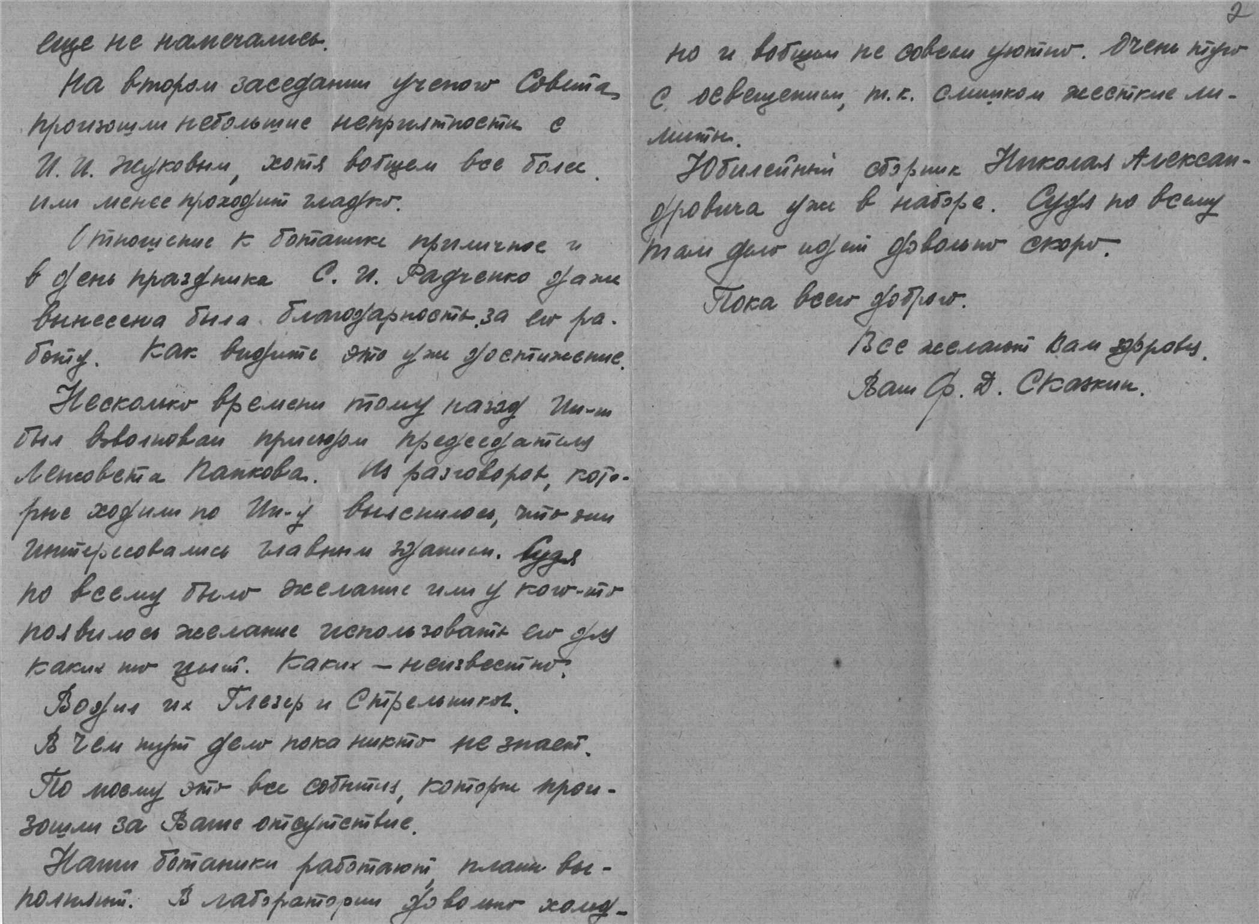 еще не намечались.
На втором заседании ученого Совета
произошли небольшие неприятности с
И. И. Жуковым, хотя вобщем все более
или менее проходит гладко.
Отношение к ботанике приличное и
в день праздника С. И. Радченко даже
вынесена была благодарность за его ра-
боту. Как видите это уже достижение.
Несколько времени тому назад Ин-т
был взволнован приездом председателя
Ленсовета Попкова. Из разговоров, кото-
рые ходили по Ин-у выяснилось, что они
интересовались главным зданием. Судя
по всему было желание или у кого-то
появилось желание использовать его для
каких то целей. Каких – неизвестно.
Водил их Глезер и Стрельников.
В чем тут дело пока никто не знает.
По моему это все события, которые прои-
зошли за Ваше отсутствие.
Наши ботаники работают, планы вы-
полняют. В лаборатории довольно холод-
2
но и вобщем не совсем уютно. Очень туго
с освещением, т.к. слишком жесткие ли-
миты.
Юбилейный сборник Николая Алексан-
дровича уже в наборе. Судя по всему
там дело идет довольно скоро.
Пока всего доброго.
Все желают Вам здоровья.
Ваш Ф. Д. Сказкин.